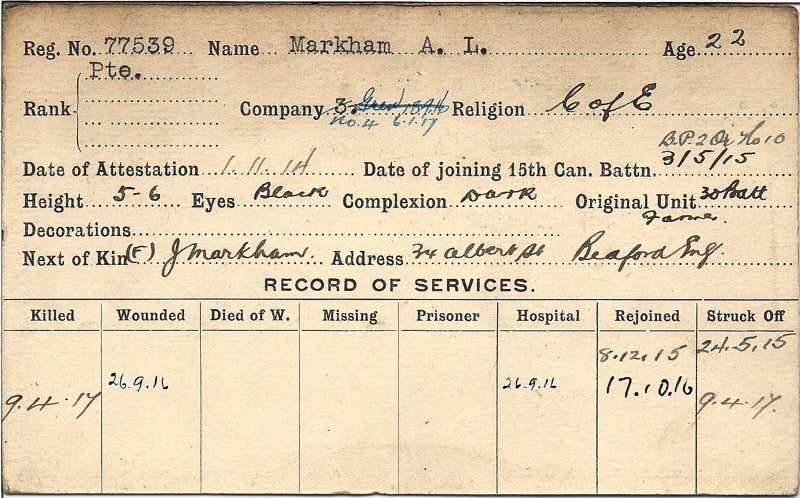 Reg. No. 77539 Name Markham A. L. Age 22
Pte.
Rank Company 3. Religion C of E
No. 4 6.1.17
B.P. 2 Or. No 10
Date of Attestation 1.11.14 Date of joining 15th Can. Battn. 3/5/15
Height 5-6 Eyes Black Complexion Dark Original Unit 30 Batt
Farmer
Decorations
Next of Kin (F) J Markham. Address 74 Albert St Bedford Eng.
RECORD OF SERVICES.
Killed Wounded Died of W. Missing Prisoner Hospital Rejoined Struck Off
8.12.15 24.5.15
9.4.17 26.9.16 26.9.16 17.10.16 9.4.17.